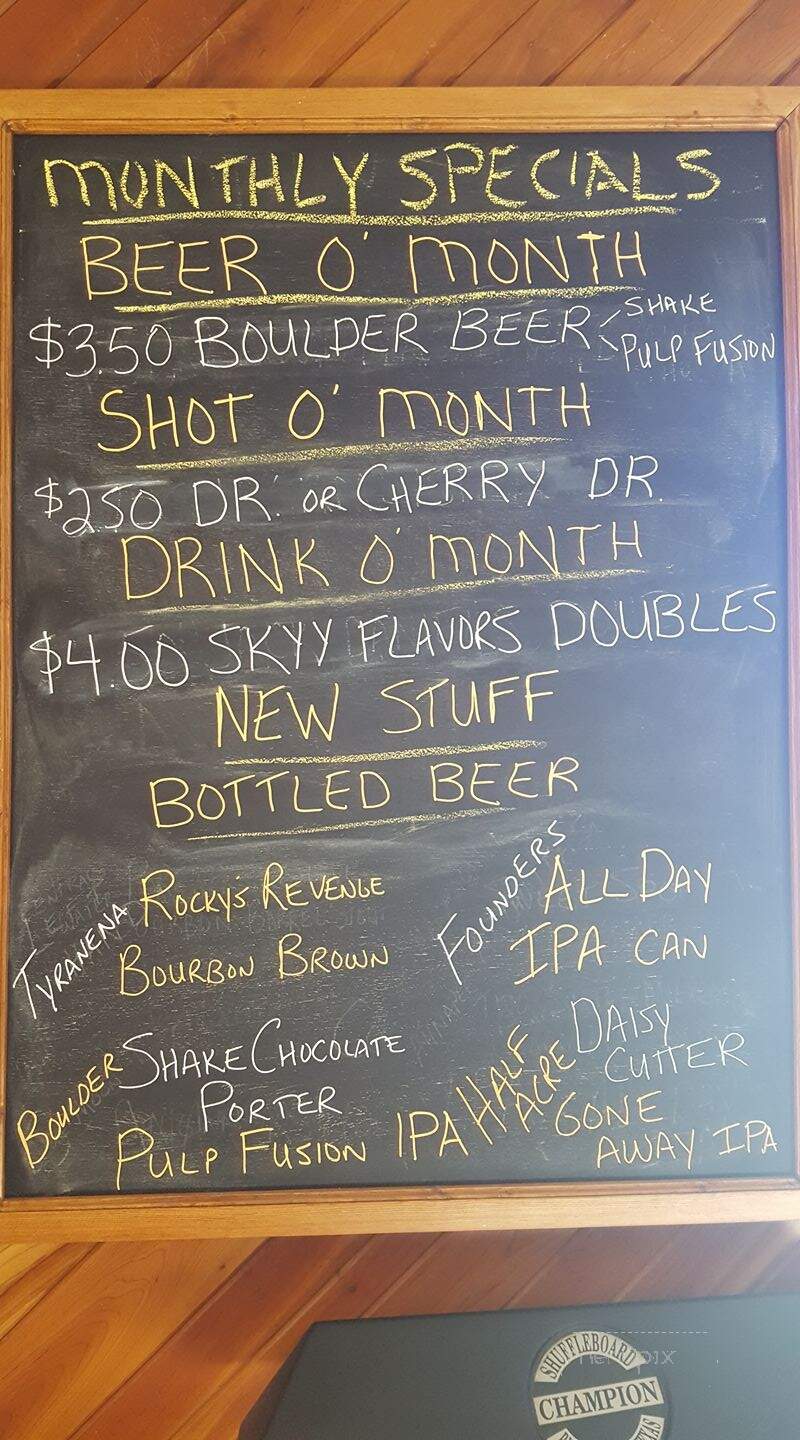 MONTHLY SPECIALS
BEER O' MONTH
$3.50 BOULDER BEER < SHAKE
PULP FUSION
SHOT O' MONTH
$2.50 DR. OR CHERRY DR.
DRINK O' MONTH
$4.00 SKYY FLAVORS DOUBLES
NEW STUFF
BOTTLED BEER
TYRANENA ROCKY'S REVENGE
BOURBON BROWN
FOUNDERS ALL DAY
IPA CAN
BOULDER SHAKE CHOCOLATE
PORTER
PULP FUSION IPA
HALF ACRE DAISY
CUTTER
GONE
AWAY IPA
SHUFFLEBOARD
CHAMPION